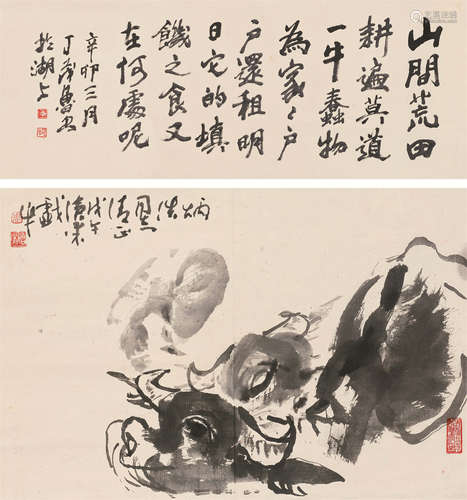 山間荒田
耕遍莫道
一牛蠢物
為家々戶
戶還租明
日它的填
饑之食又
在何處呢
辛卯三月
丁茂魯書
於湖上
炳浩
清正
戊午